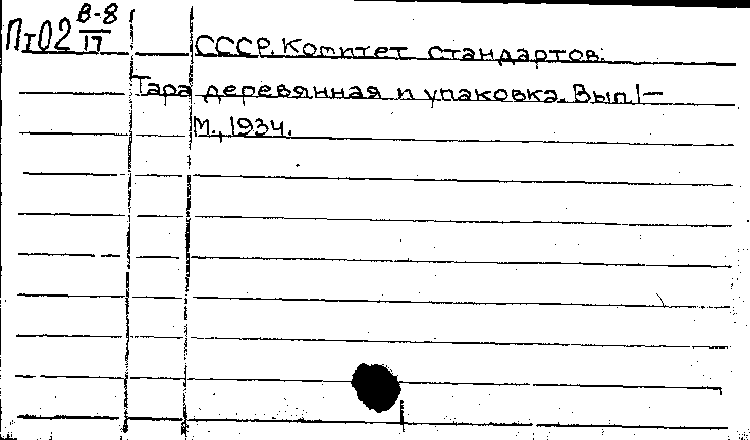 Пт02 В-8/17
СССР. Комитет стандартов.
Тара деревянная и упаковка. Вып.1—
М., 1934.